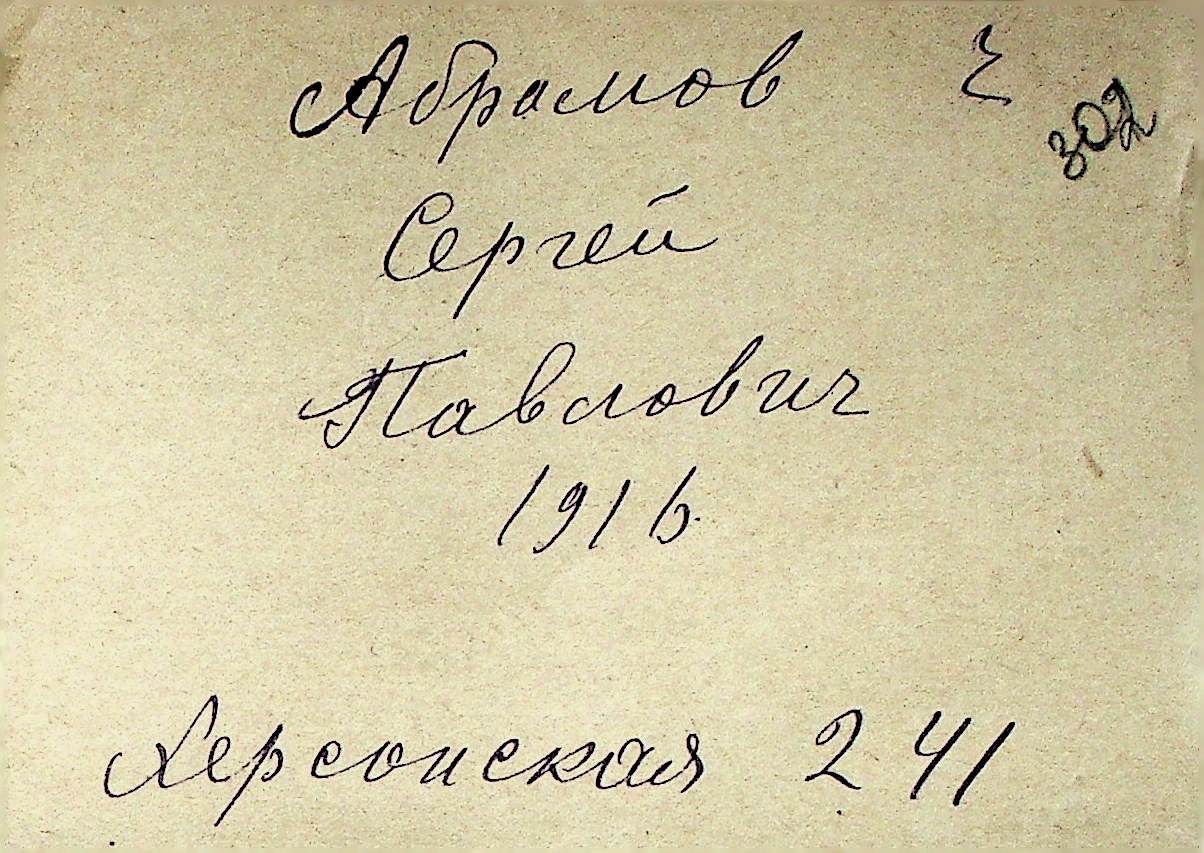 Абрамов
302
Сергей
Павлович
1916
Херсонская 2 41